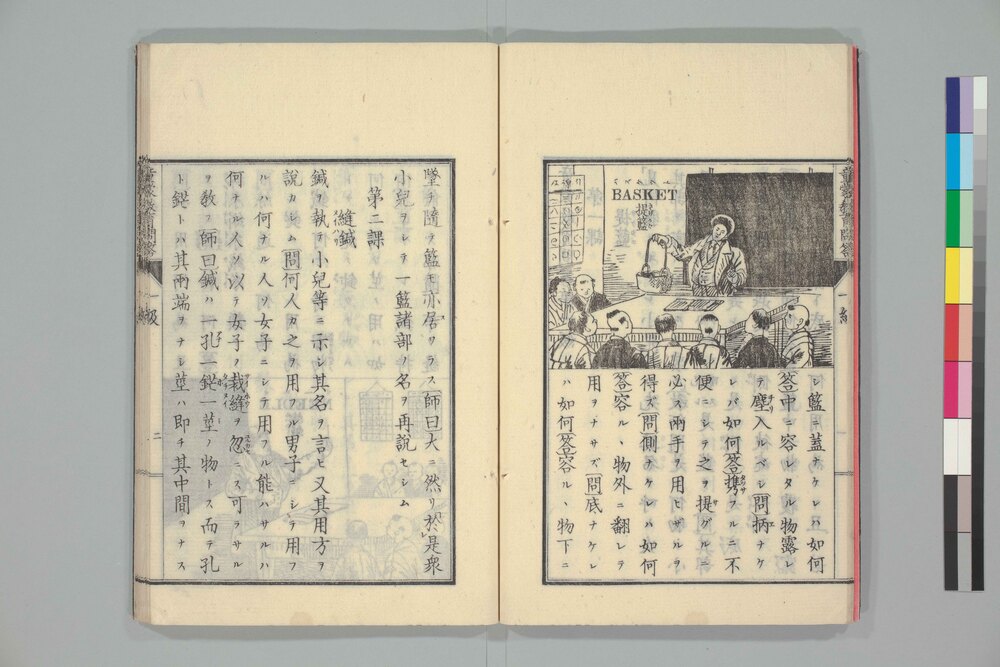 BASKET
提籃
シ籃ニ蓋ナケレハ如何
答中ニ容レタル物露レ
テ塵入ルベシ問柄ナケ
レバ如何答携フルニ不
便ニシテ之ヲ提グルニ
必ス兩手ヲ用ヒザルヲ
得ズ問側ナケレハ如何
答容ルヽ物外ニ翻レテ
用ヲナサズ問底ナケレ
ハ如何答容ルヽ物下ニ
墜チ隨テ籃モ亦居ワラス師曰大ニ然リ於是衆
小兒ヲシテ一籃諸部ノ名ヲ再說セシム
第二課
縫鍼
鍼ヲ執テ小兒等ニ示シ其名ヲ言ヒ又其用方ヲ
說カシム問何人カ之ヲ用フル男子ニシテ用フ
ルハ何ナル人ソ女子ニシテ用フル能ハサルハ
何ナル人ソ以テ女子ノ裁縫ヲ忽ニス可ラサル
ヲ敎フ師曰鍼ハ一孔一鋩一莖ノ物トス而テ孔
ト鋩トハ其兩端ヲナシ莖ハ即チ其中間ヲナス
一級
二